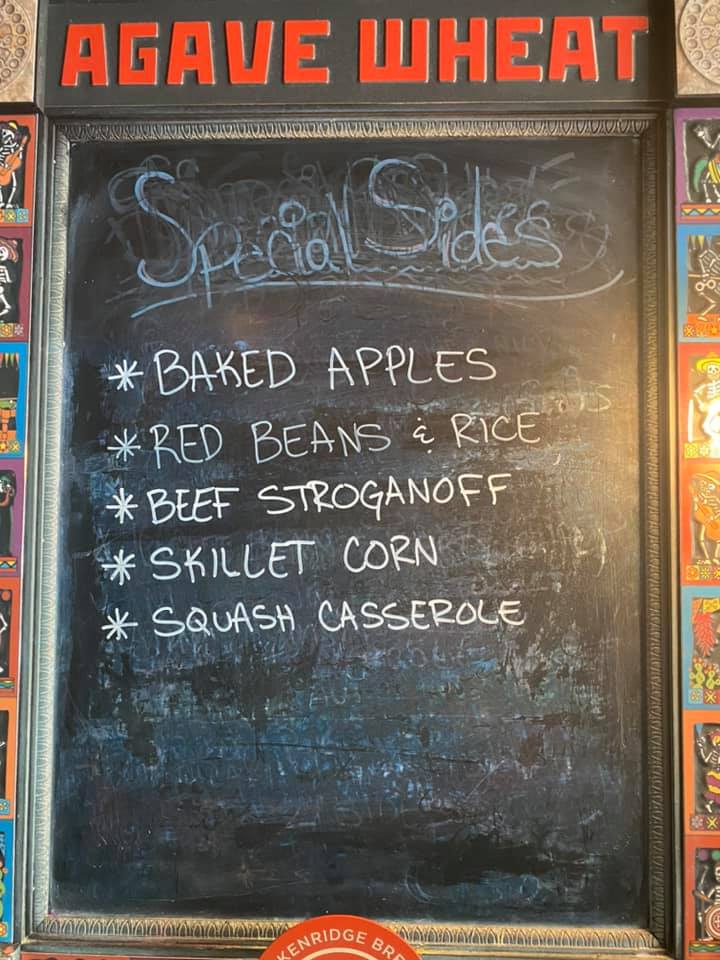 AGAVE WHEAT
Special Sides
* BAKED APPLES
* RED BEANS & RICE
* BEEF STROGANOFF
* SKILLET CORN
* SQUASH CASSEROLE
KENRIDGE BRE